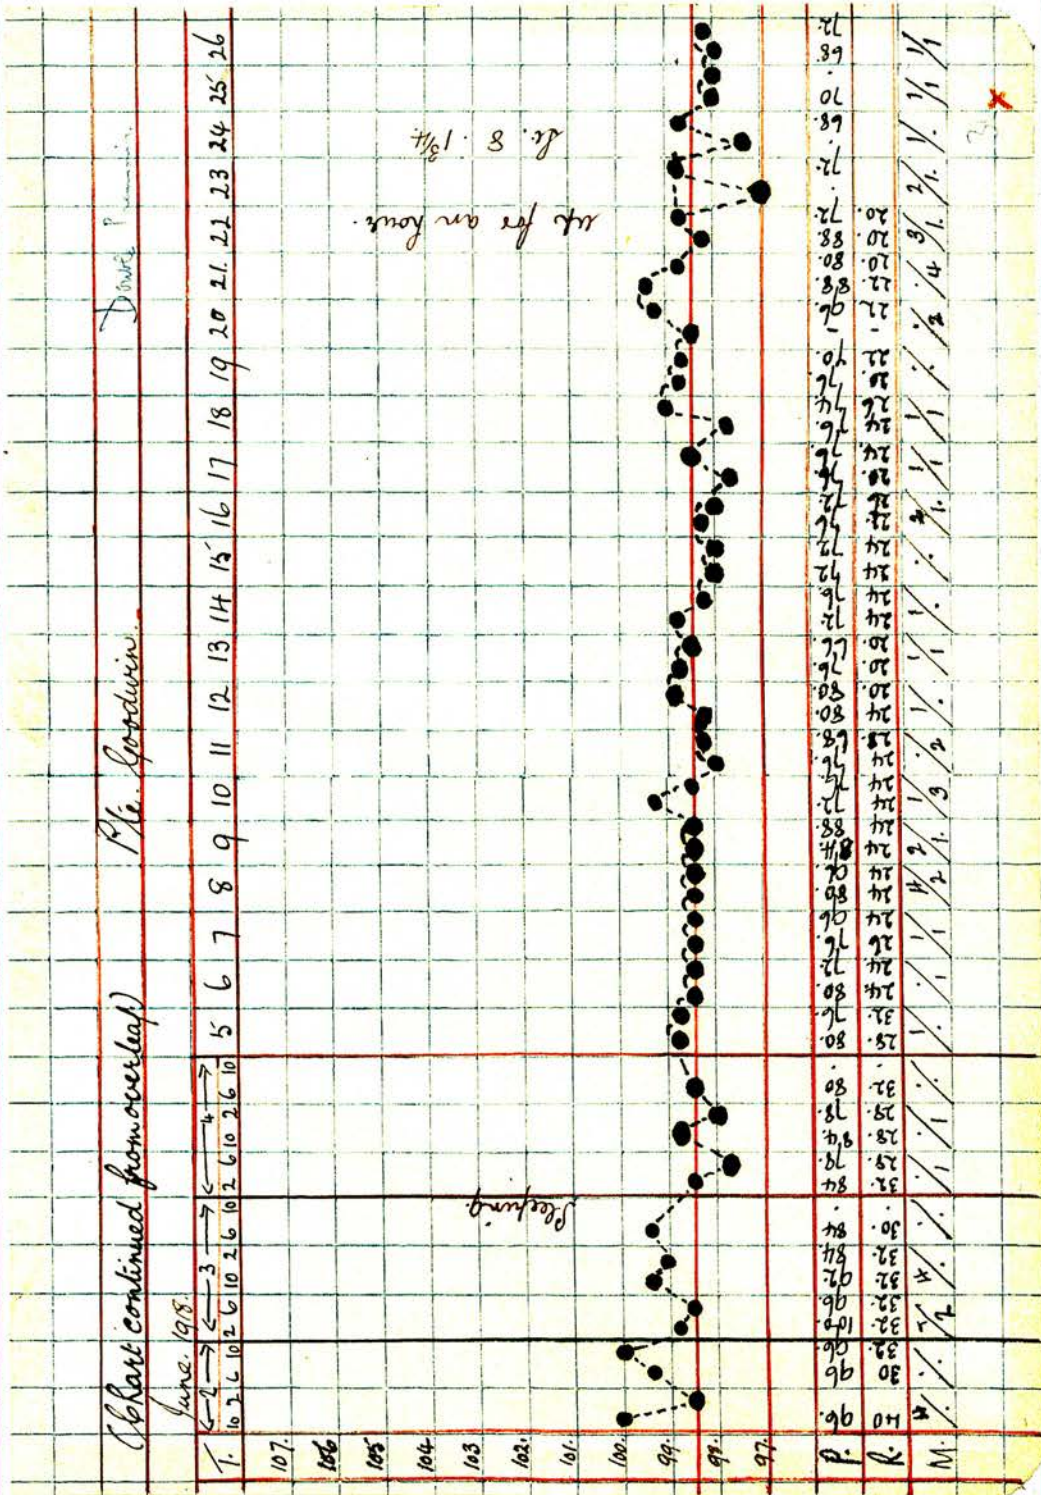 (Chart continued from overleaf) Pte. Goodwin.
June. 1918.
T. ←2→ ←3→ ←4→ 5 6 7 8 9 10 11 12 13 14 15 16 17 18 19 20 21. 22 23 24 25 26
10 2 6 10 2 6 10 2 6 10 2 6 10 2 6 10
107.
106
105
104.
103
102.
101.
100.
99.
98.
97.
Sleeping.
up for an hour.
8. 1 3/4
P. 96. 96 96. 100. 96. 92. 84 84 . 84 78. 84. 78. 80 . 80. 76 80. 72. 76 96 80. 84 88 72. 76. 68. 80 80. 76. 66 72. 76 72 72 76 72. 76 76. 76. 74 76. 70. - 96. 88 80 88 72. . 72. . 68. 70 . 68. 72.
R. 40 30 32. 32. 32. 32. 32. 30. . 32. 28. 28. 28. 32. . 28. 32. 24. 24 26 24 24 24 24 24 24 24 24 28. 24 20 20. 20. 24 24 24 24 22. 26 20. 24. 24 26 20. 22 - 22. 22. 20 20 20.
M.